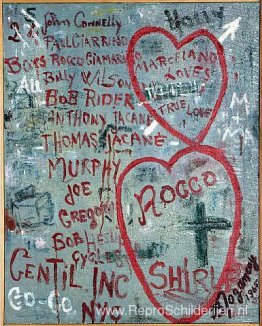 John Connelly
PAUL GIARRINO
BOYS ROCCO GIAMARINO
BILLY WILSON
BOB RIDER
ANTHONY TACANE
THOMAS JACANE
MURPHY
JOE
GREGORY
BOB HELL
CYCLES
GENTIL INC
GO-GO
MARCELANO
LOVES
TRUE LOVE
M + M
ROCCO
+
SHIRL
www.ReproSchilderijen.nl